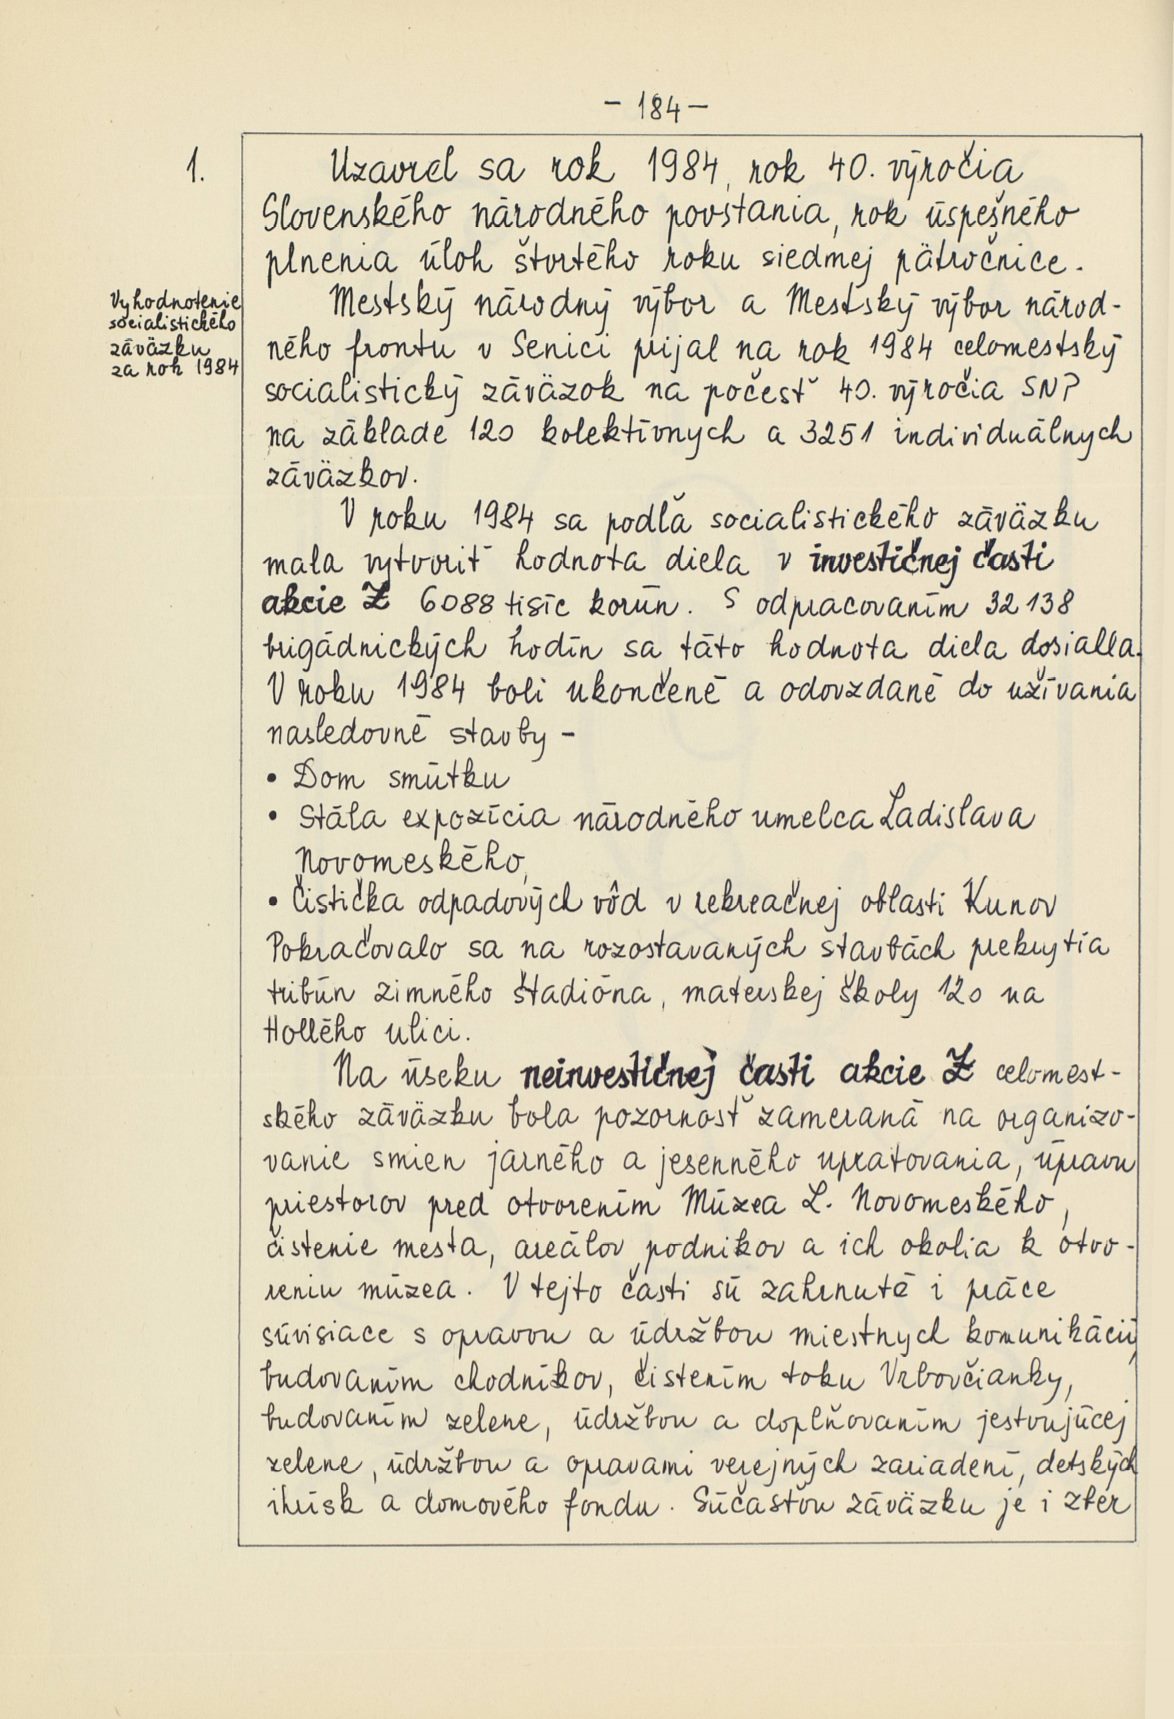 - 184 -
1.
Uzavrel sa rok 1984, rok 40. výročia
Slovenského národného povstania, rok úspešného
plnenia úloh štvrtého roku siedmej päťročnice.
Vyhodnotenie
socialistického
záväzku
za rok 1984
Mestský národný výbor a Mestský výbor národ-
ného frontu v Senici prijal na rok 1984 celomestský
socialistický záväzok na počesť 40. výročia SNP
na základe 120 kolektívnych a 3251 individuálnych
záväzkov.
V roku 1984 sa podľa socialistického záväzku
mala vytvoriť hodnota diela v investičnej časti
akcie Z 6088 tisíc korún. S odpracovaním 32 138
brigádnických hodín sa táto hodnota diela dosialla.
V roku 1984 boli ukončené a odovzdané do užívania
nasledovné stavby -
• Dom smútku
• Stála expozícia národného umelca Ladislava
Novomeského,
• Čistička odpadových vôd v rekreačnej oblasti Kunov
Pokračovalo sa na rozostavaných stavbách prekrytia
tribún zimného štadióna, materskej školy 120 na
Hollého ulici.
Na úseku neinvestičnej časti akcie Z celomest-
ského záväzku bola pozornosť zameraná na organizo-
vanie smien jarného a jesenného upratovania, úpravu
priestorov pred otvorením Múzea L. Novomeského,
čistenie mesta, areálov podnikov a ich okolia k otvo-
reniu múzea. V tejto časti sú zahrnuté i práce
súvisiace s opravou a údržbou miestnych komunikácií,
budovaním chodníkov, čistením toku Vrbovčianky,
budovaním zelene, údržbou a doplňovaním jestvujúcej
zelene, údržbou a opravami verejných zariadení, detských
ihrísk a domového fondu. Súčasťou záväzku je i zber